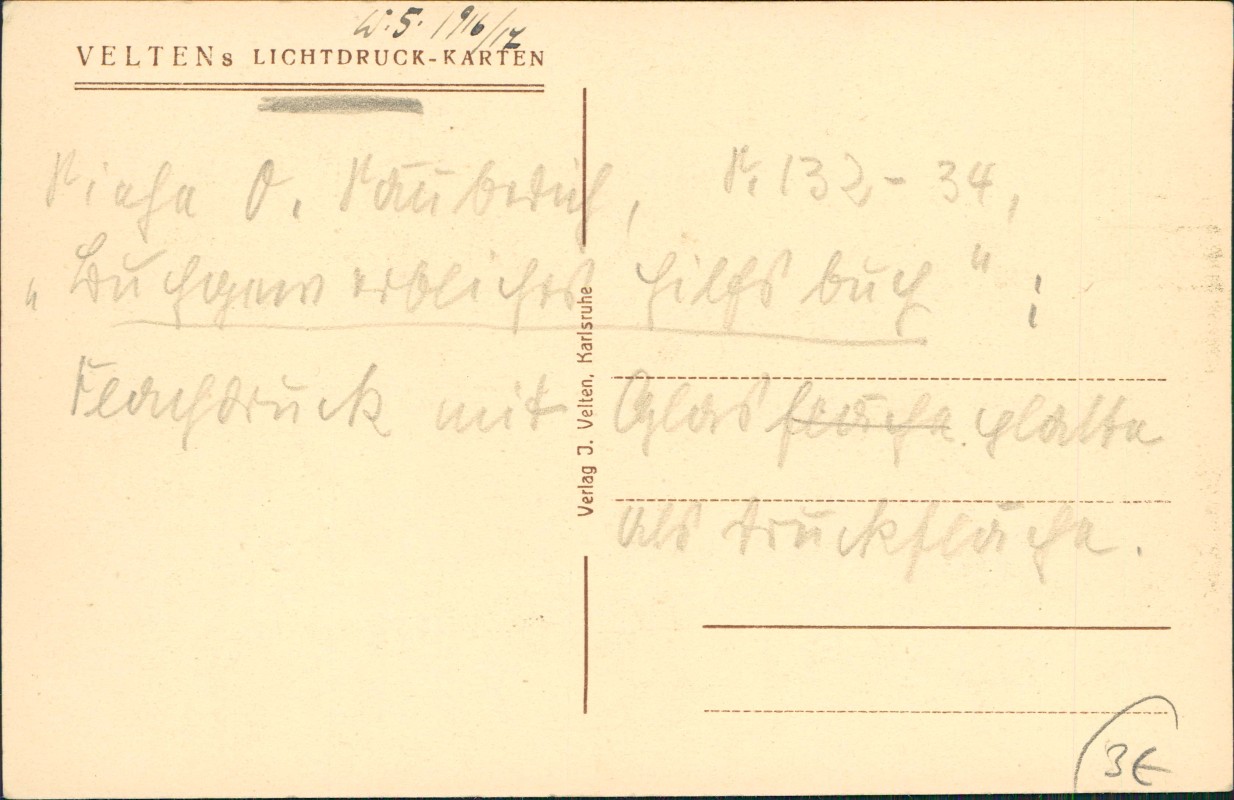 W.S. 1916/17
VELTENs LICHTDRUCK-KARTEN
Siehe O. Säuberlich, S. 132-34,
„Buchgewerbliches Hilfsbuch":
Flachdruck mit Glasfläche platte
als Druckfläche.
Verlag J. Velten, Karlsruhe
3€